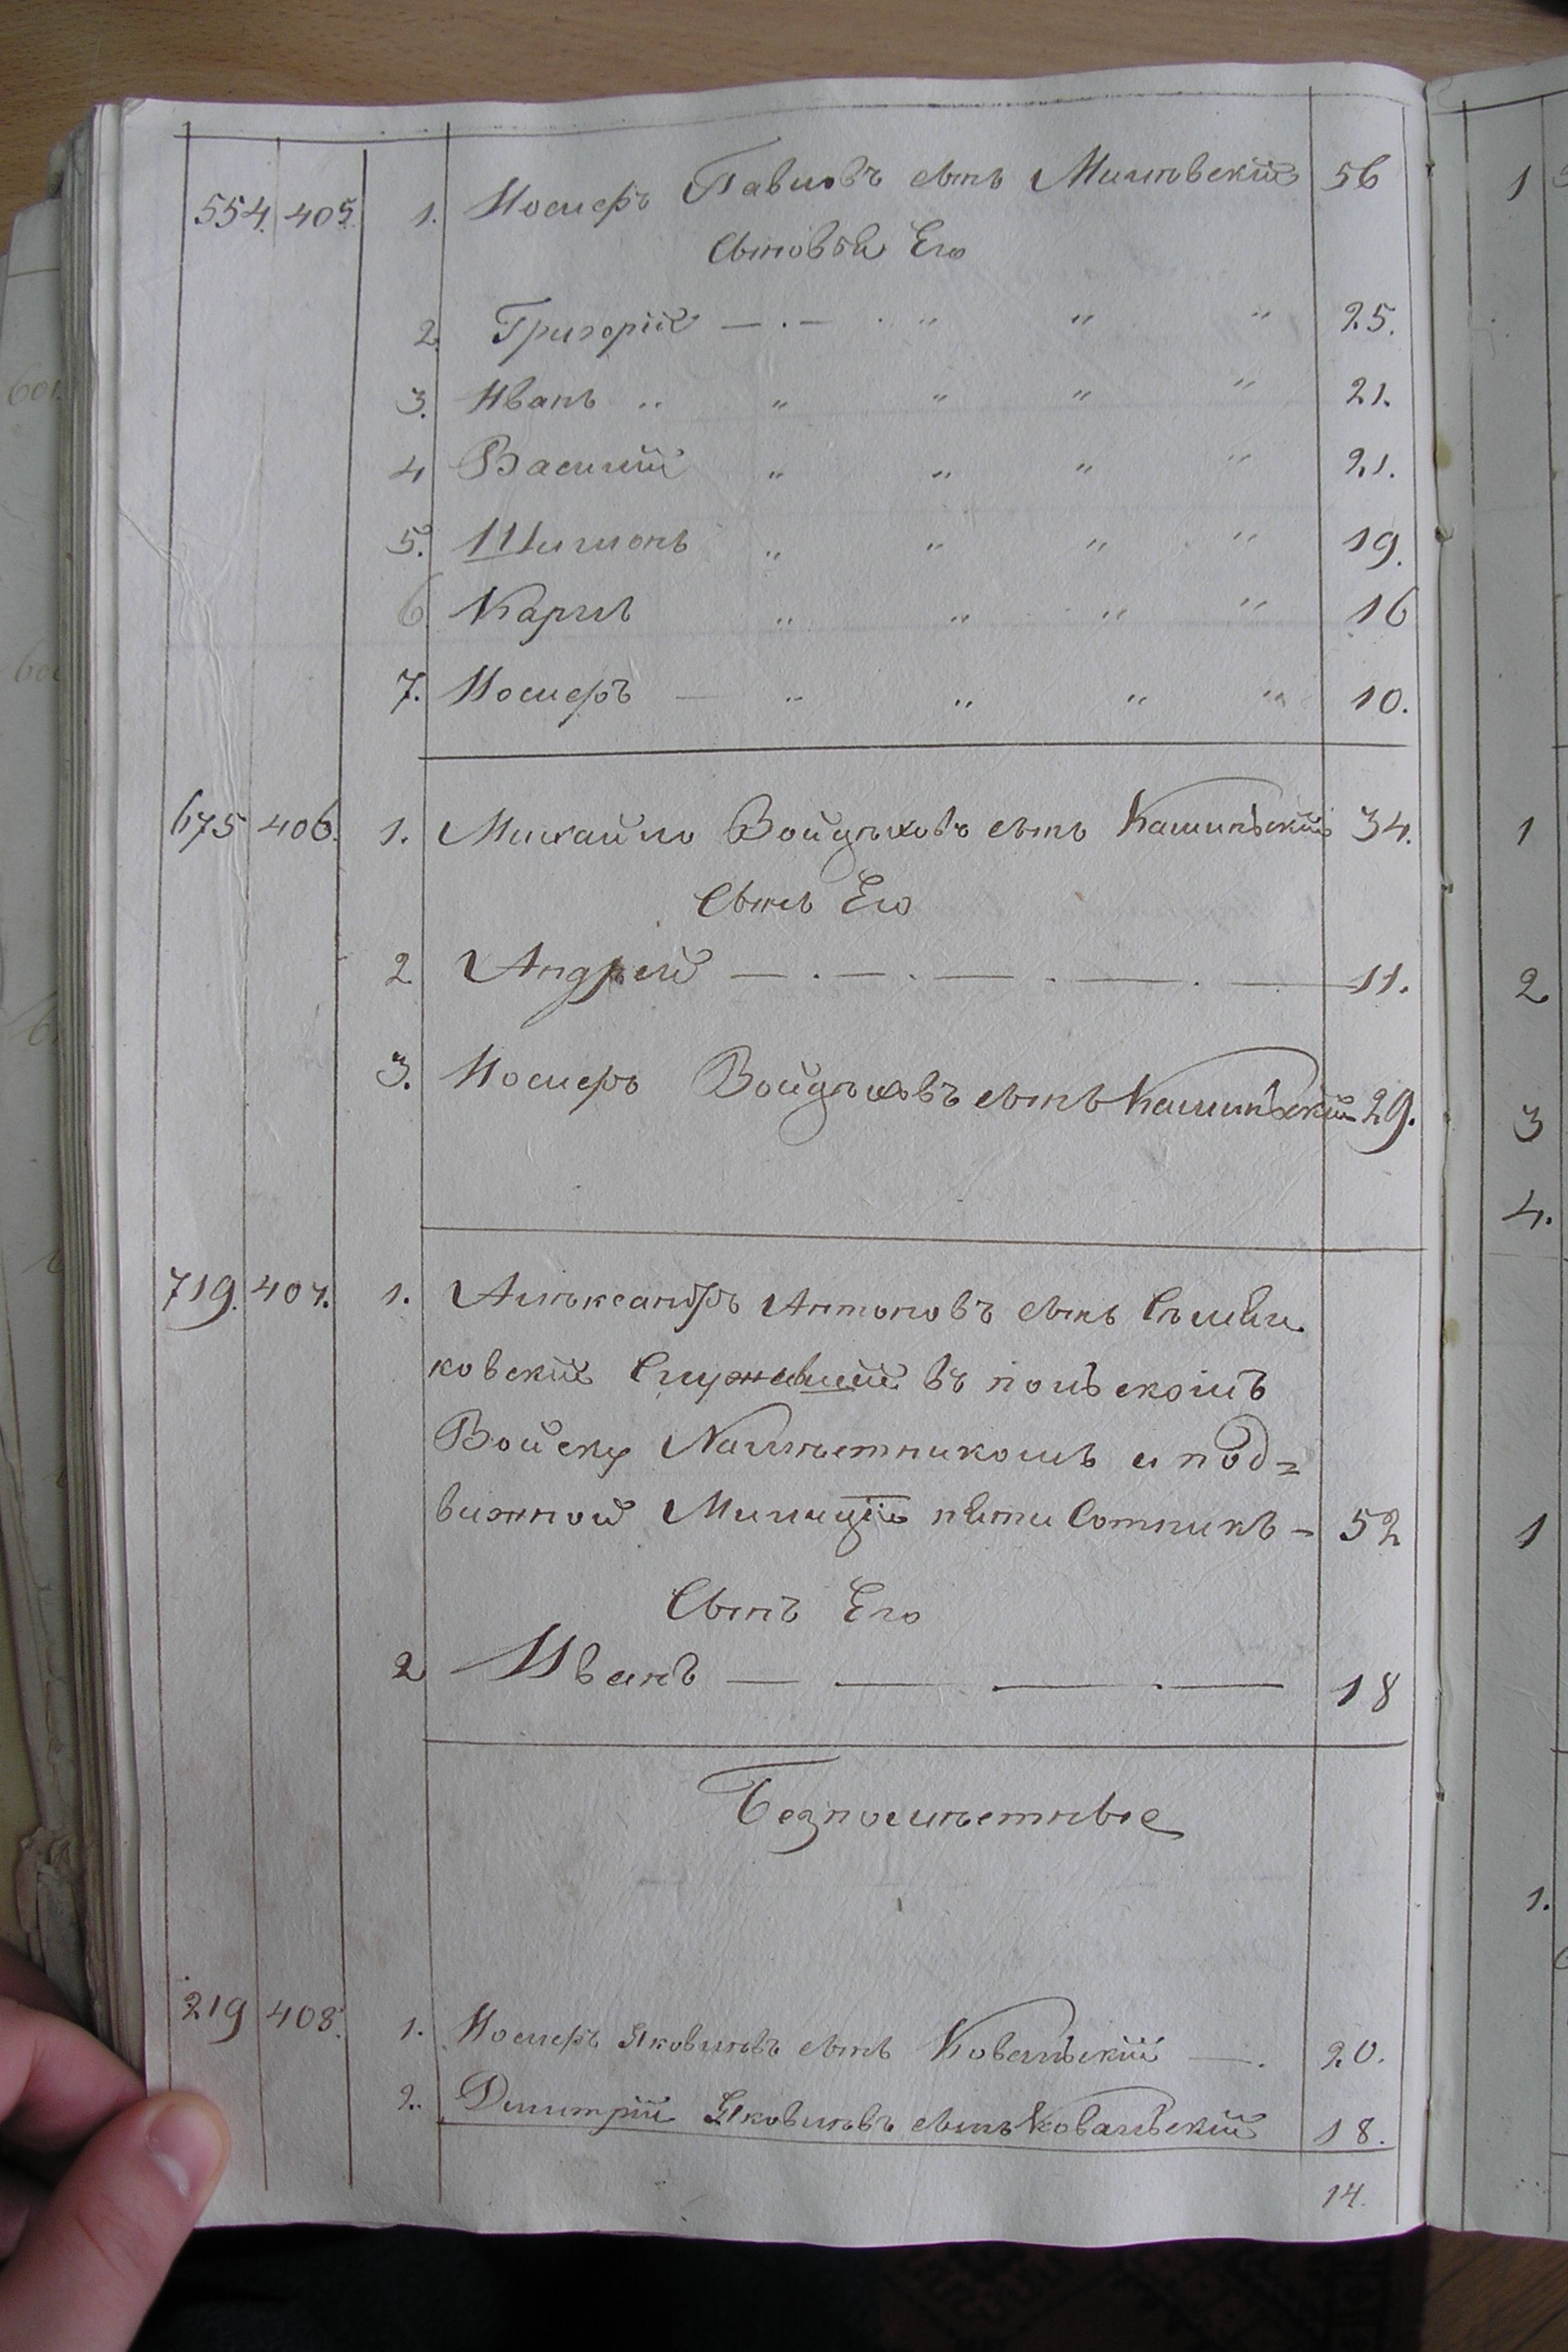 554. 405. 1. Иосифъ Павловъ сынъ Милевский 56
Сыновья Его
2. Григорій — . — . „ „ „ 25.
3. Иванъ .. „ „ „ „ 21.
4 Василий „ „ „ „ 21.
5. Шимонъ „ „ „ „ 19.
6 Карлъ „ „ „ „ 16
7. Иосифъ — „ „ „ „ 10.
675 406. 1. Михайло Войцѣховъ сынъ 34.
Сынъ Его
2 Андрей — . — . — . — . — 11.
3. Иосифъ Войцѣховъ сынъ 29.
719. 407. 1. Алѣксандръ Антоновъ сынъ
ковский Служивший въ польскомъ
Войску Намѣстникомъ и под=
вижной Милиціи пяти Сотникъ - 52
Сынъ Его
2 Иванъ — — — . — 18
Безпомѣстные
219 408. 1. Иосифъ Яковлѣвъ сынъ Ковальскій — . 20.
2. Димитрій Яковлѣвъ сынъ Ковальскій 18.
14.
1
1
2
3
4.
1
1.